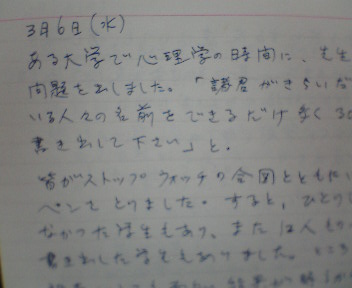 3月6日(水)
ある大学で心理学の時間に、先生
問題を出しました。「諸君がきらいだ
いる人々の名前をできるだけ多く30
書き出して下さい」と。
皆がストップウォッチの合図とともに
ペンをとりました。すると、ひとりし
なかった学生もあり、また12人もの
書き出した学生もありました。ところ